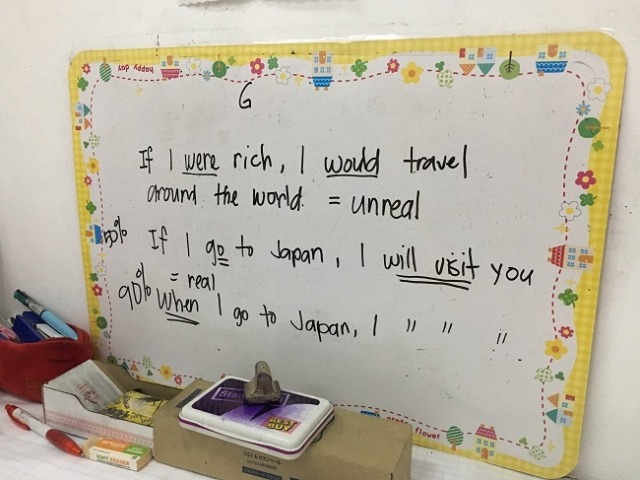 happy day
G
If I were rich, I would travel
around the world = unreal
50% If I go to Japan, I will visit you
= real
90% When I go to Japan, I " " "
flower
Stamp
BEST
BUY
SOFT ERASER